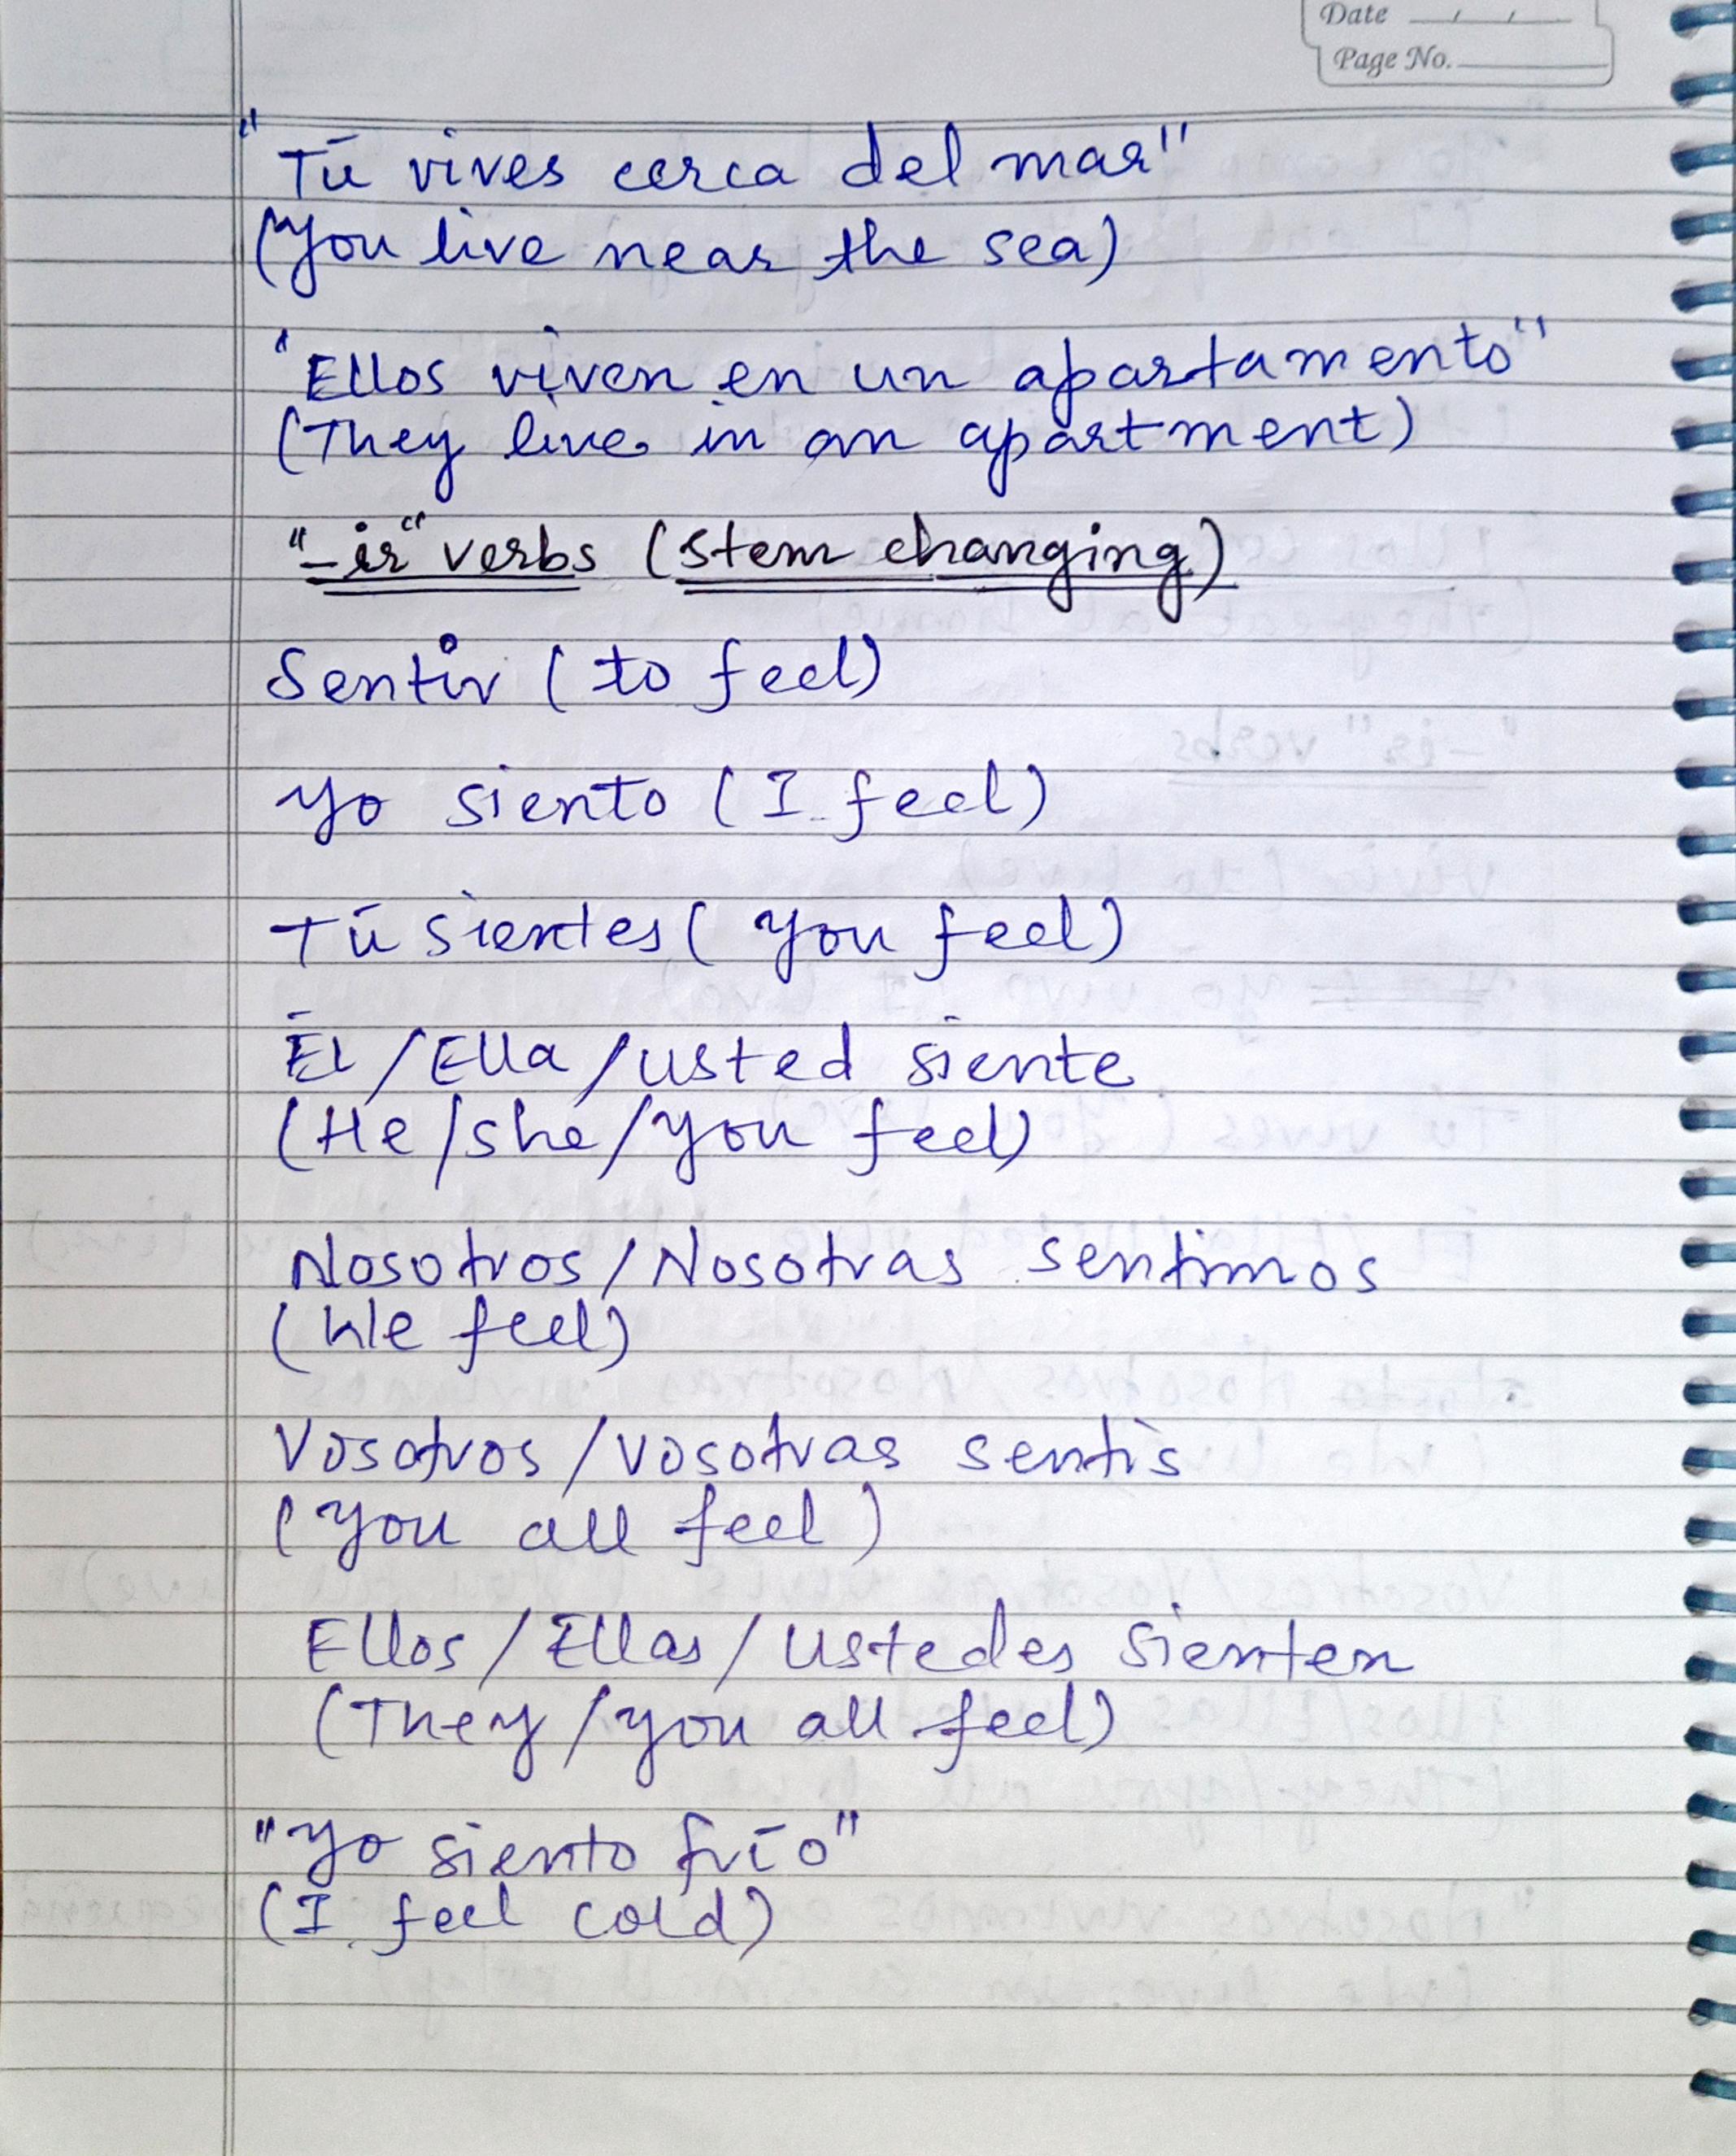 Date __/__/__
Page No.
"Tú vives cerca del mar"
(You live near the sea)
"Ellos viven en un apartamento"
(They live in an apartment)
"-ir" verbs (stem changing)
Sentir (to feel)
Yo siento (I feel)
Tú sientes (You feel)
Él/Ella/usted siente
(He/she/you feel)
Nosotros/Nosotras sentimos
(We feel)
Vosotros/vosotras sentìs
(you all feel)
Ellos/Ellas/ustedes sienten
(They/you all feel)
"Yo siento frío"
(I feel cold)